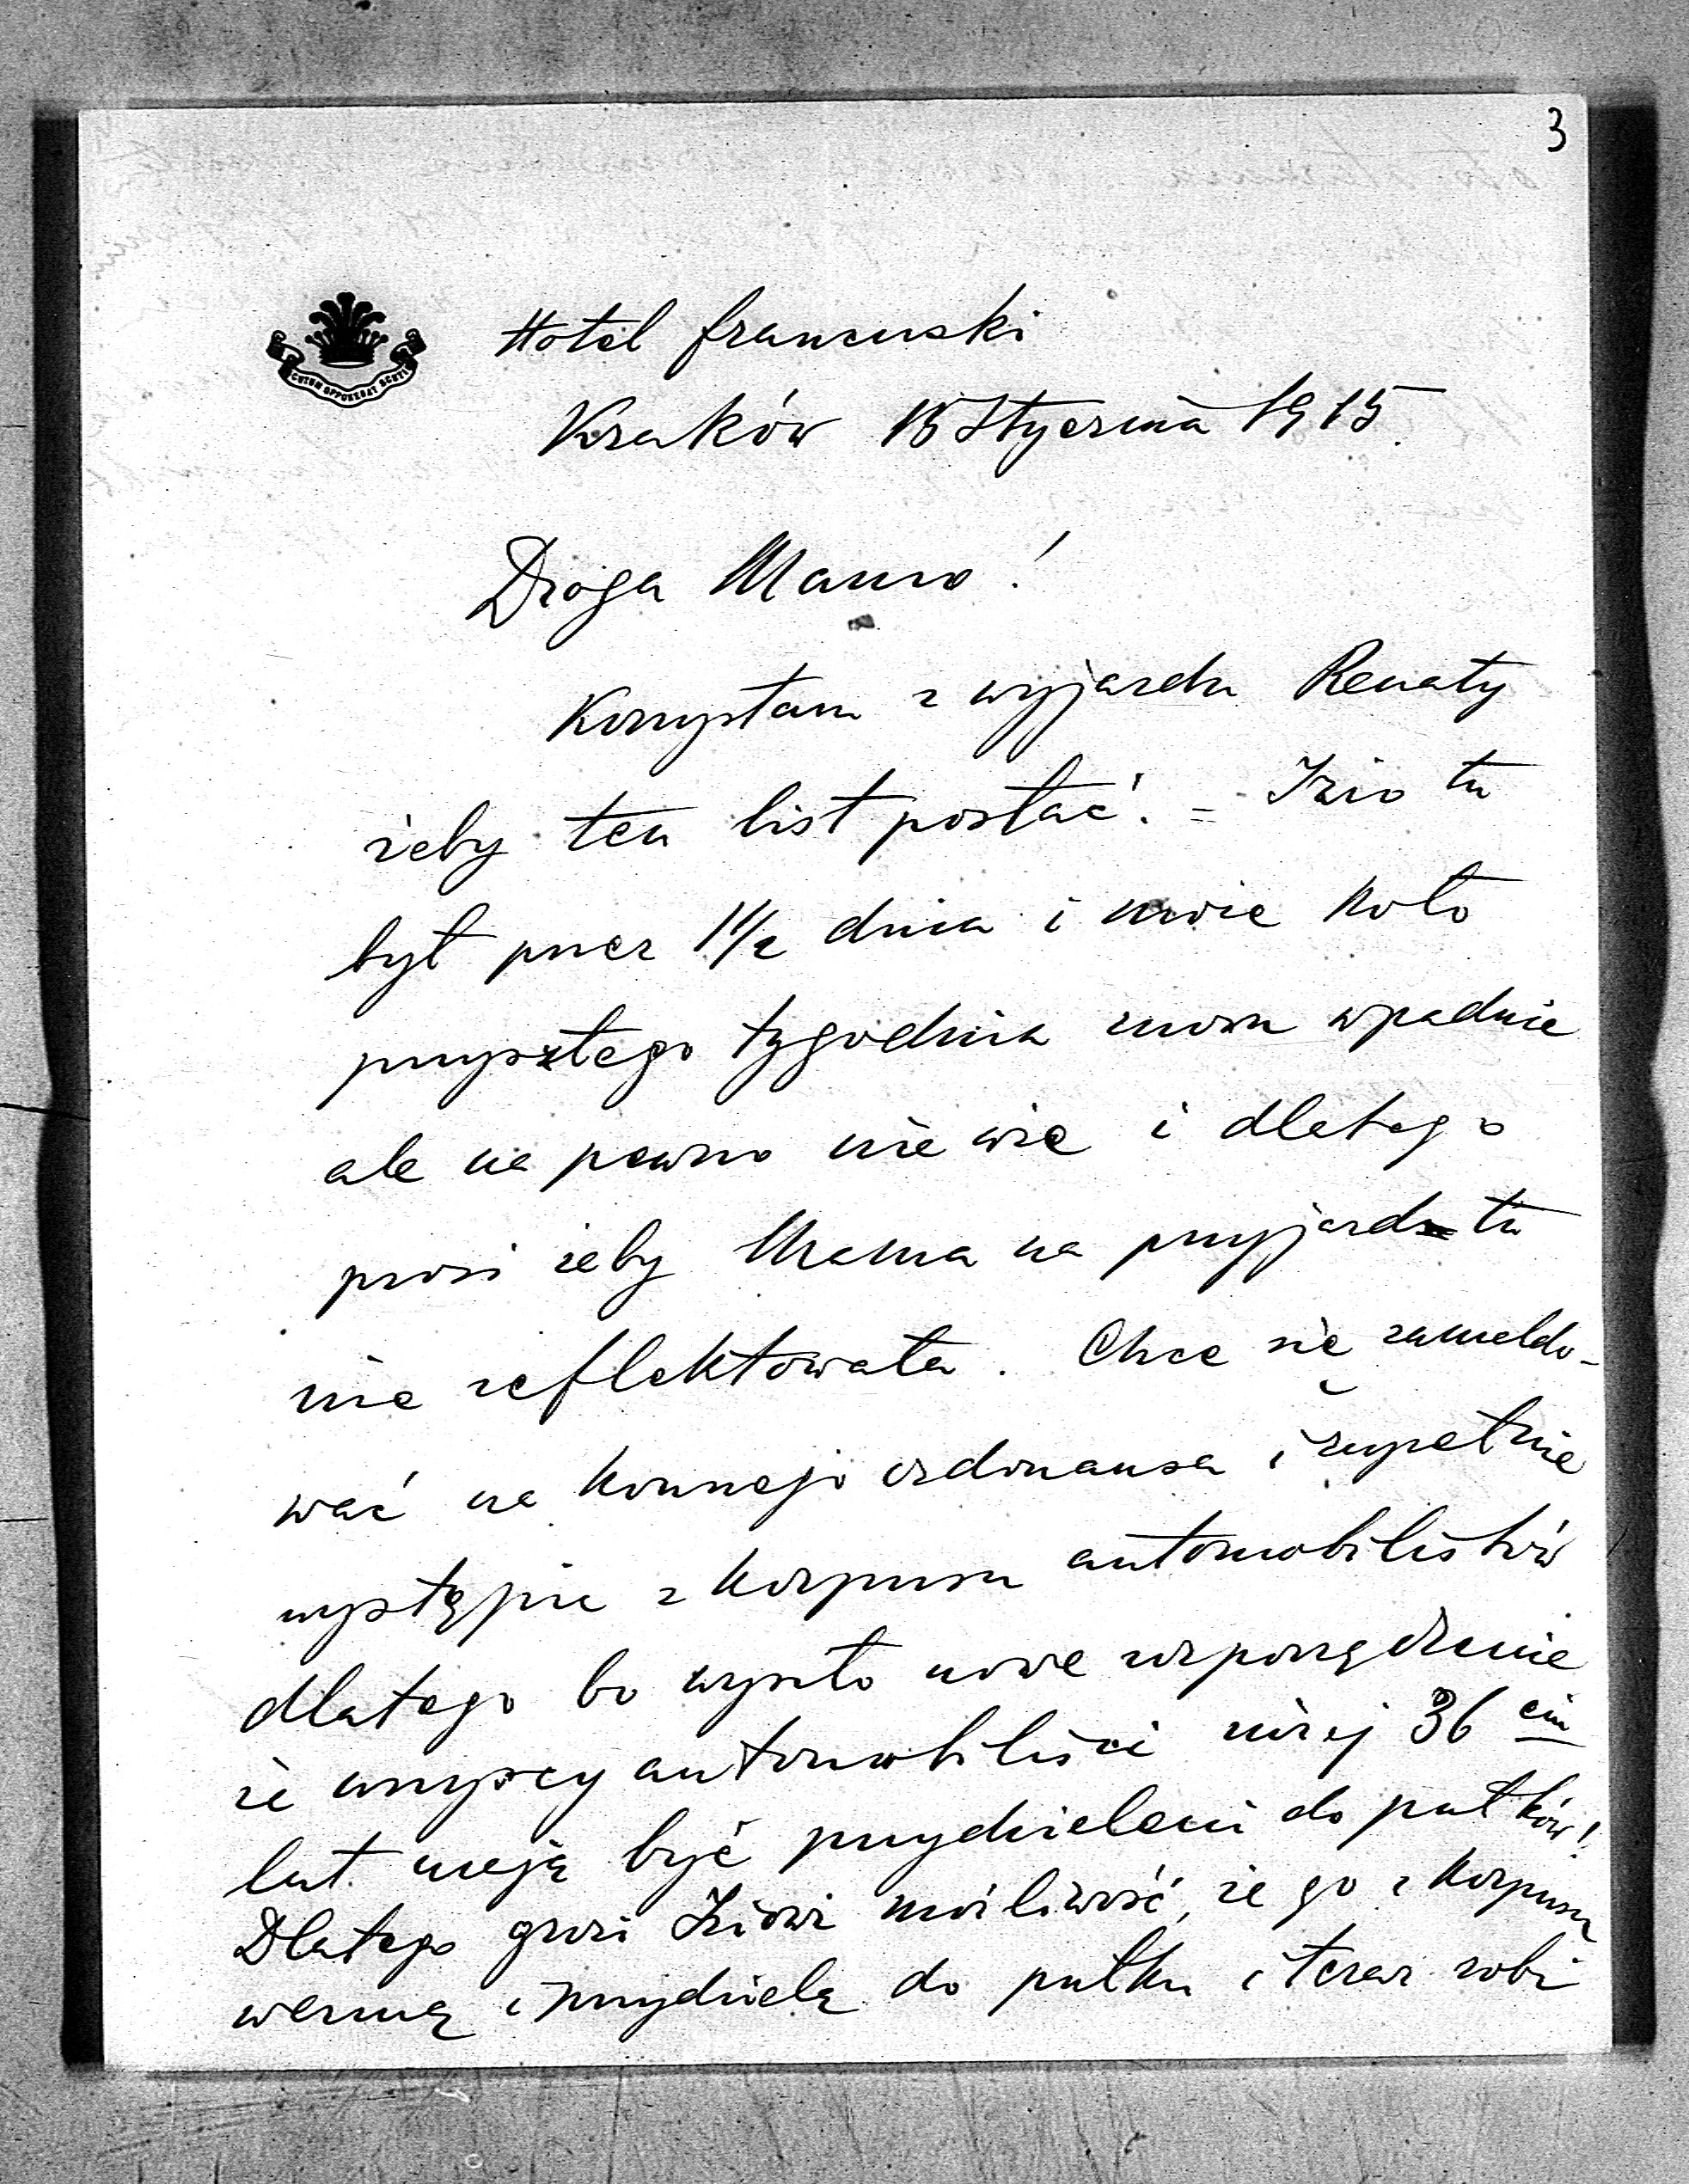 3
SCUTUM OPPONEBAT SCUTIS
Hotel francuski
Kraków 15 Stycznia 1915.
Droga Mamo!
Korzystam z wyjazdu Renaty
żeby ten list posłać. = Izio tu
był przez 1 1/2 dnia i może koło
przyszłego tygodnia znowu wpadnie
ale na pewno nie wie i dlatego
prosi żeby Mama na przyjazd tu
nie reflektowała. Chce się zameldo-
wać na konnego ordonansa i zupełnie
wystąpić z Korpusu automobilistów
dlatego bo wyszło nowe rozporządzenie
że wszyscy automobiliści niżej 36 ciu
lat mają być przydzieleni do pułków!
Dlatego grozi Iziowi możliwość, że go z Korpusu
wezmą i przydzielą do pułku i teraz robi